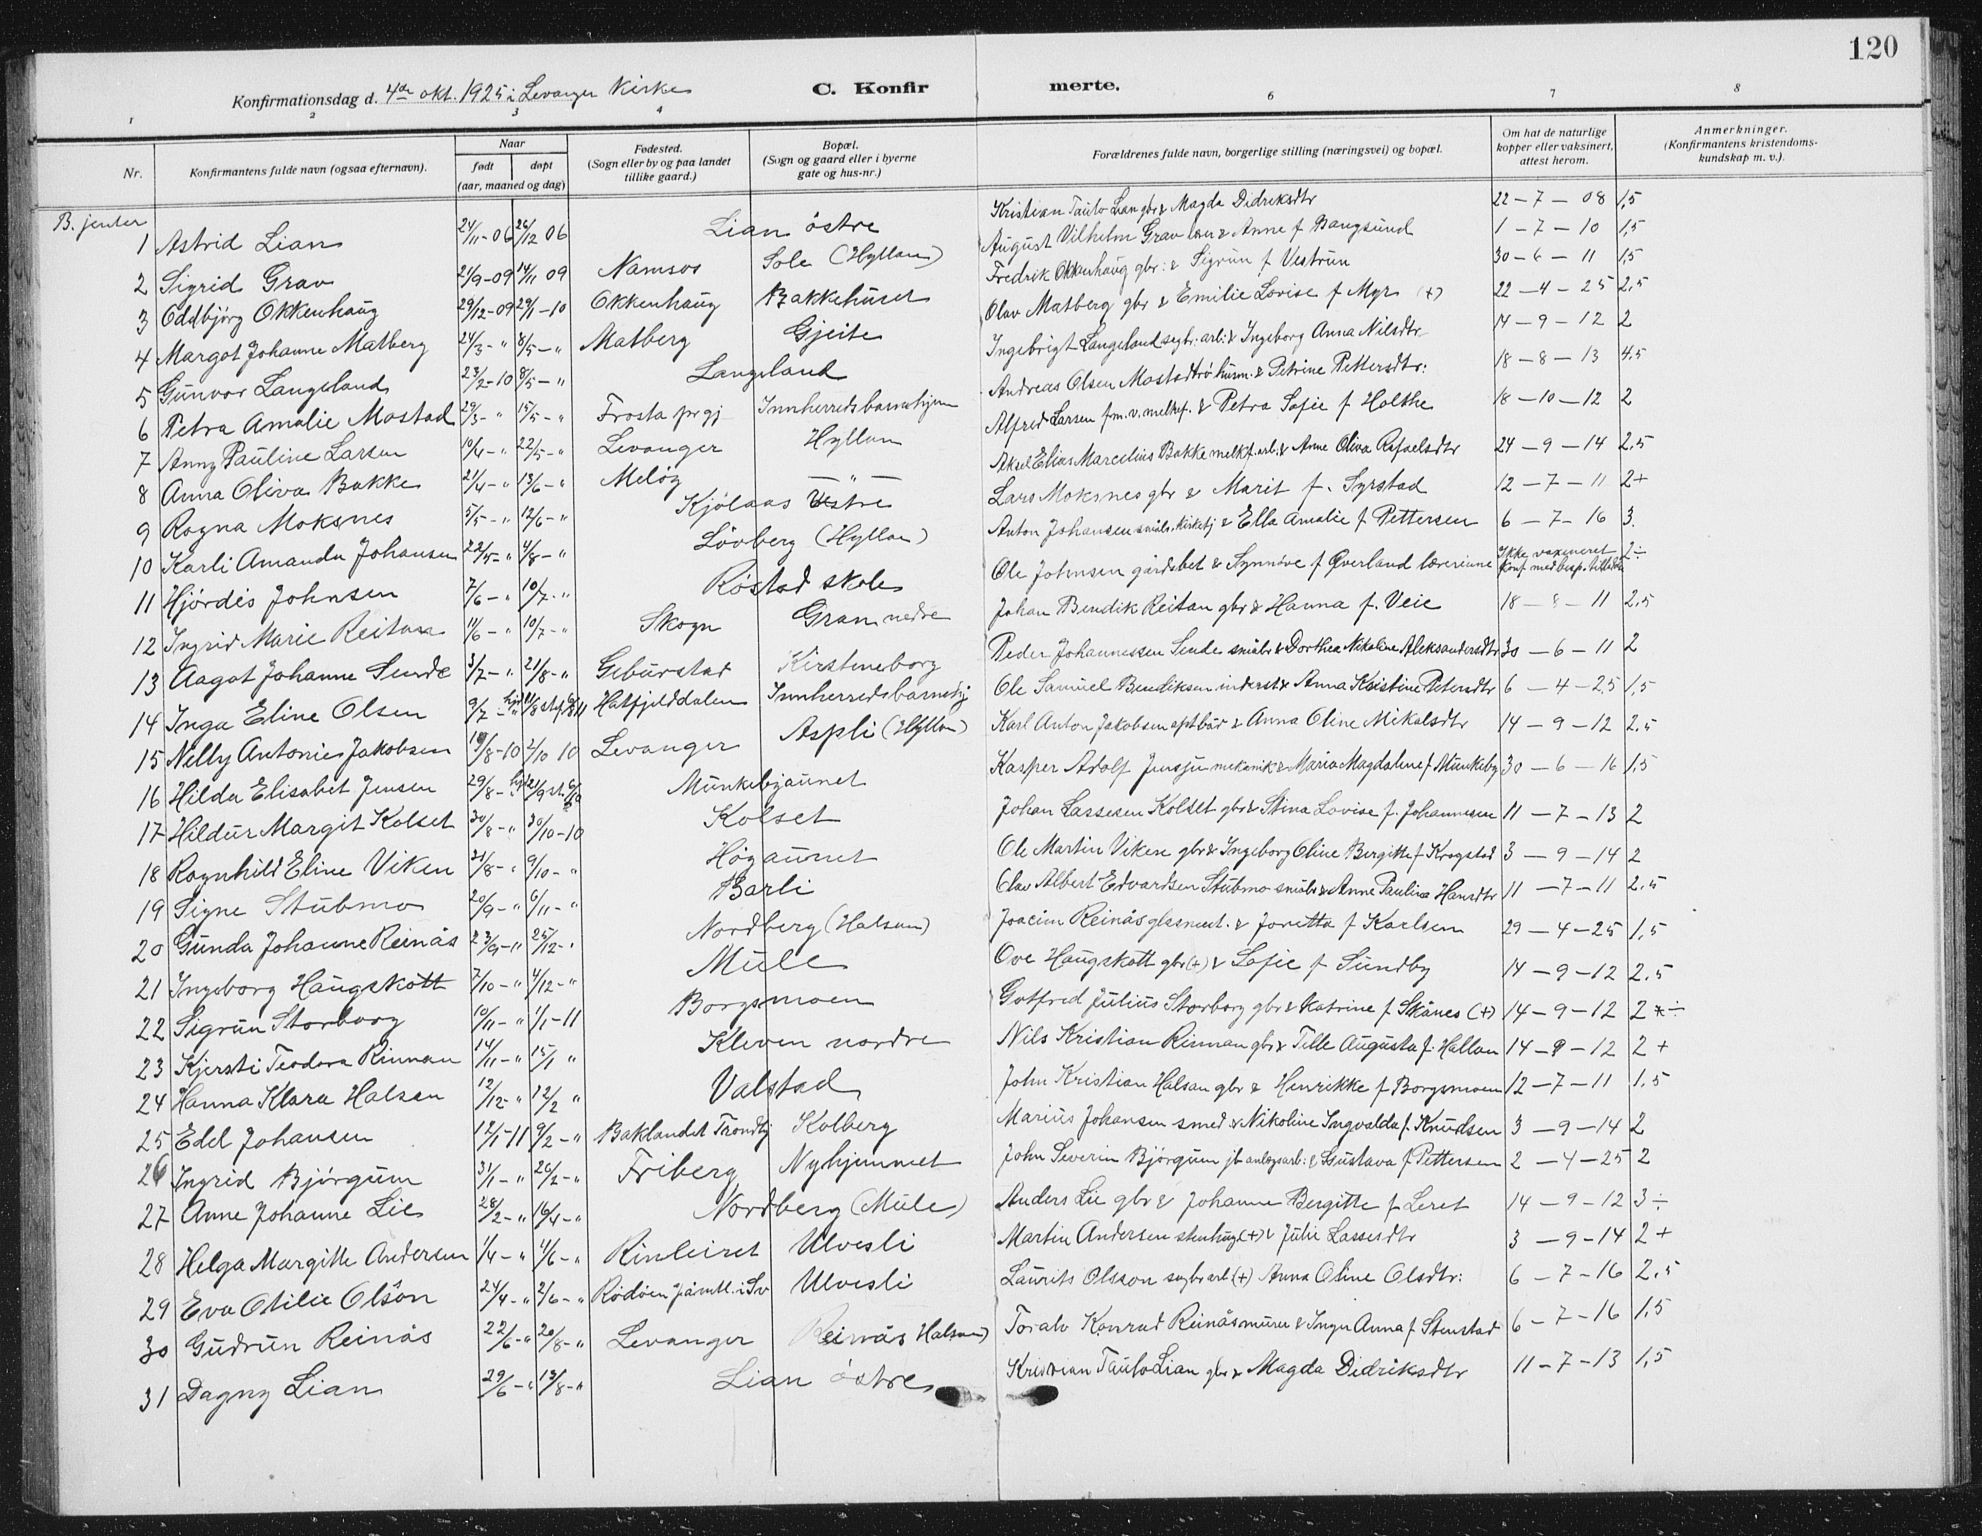 120
Konfirmationsdag d. 4de okt. 1925 i Levanger Kirke C. Konfirmerte.
1 2 3 4 6 7 8
Nr. Konfirmantens fulde navn (ogsaa efternavn). Naar født døpt (aar, maaned og dag) Fødested. (Sogn eller by og paa landet tillike gaard.) Bopæl. (Sogn og gaard eller i byerne gate og hus-nr.) Forældrenes fulde navn, borgerlige stilling (næringsvei) og bopæl. Om hat de naturlige kopper eller vaksinert, attest herom. Anmerkninger. (Konfirmantens kristendomskundskap m. v.).
B. jenter
1 Astrid Lian 24/11-06 26/12 06 Lian östre Kristian Tauto Lian gbr & Magda Didriksdtr 22-7-08 1,5
2 Sigrid Grav 24/9-09 14/11 09 Namsos Sole (Hyllan) August Vilhelm Grav & Anne f Bangsund 1-7-10 1,5
3 Oddbjörg Okkenhaug 29/12-09 29/1-10 Okkenhaug Bakkehuset Fredrik Okkenhaug gbr: & Sigrun f Vestrun 30-6-11 1,5
4 Margot Johanne Matberg 24/3-" 8/5-" Matberg Gjeite Olav Matberg gbr & Emilie Lovise f Myr (+) 22-4-25 2,5
5 Gunvor Langeland 23/2-10 8/5-" Langeland Ingebrigt Langeland sagbr.arb: & Ingeborg Anna Nilsdtr 14-9-12 2
6 Petra Amalie Mostad 29/3-" 15/5-" Frosta prgj Innherredsbarnehjem Andreas Olsen Mostadtrö husm. & Petrine Pettersdtr: 18-8-13 4,5
7 Anny Pauline Larsen 10/4-" 22/5-" Levanger Hyllan Alfred Larsen fm.v.melkef. & Petra Sofie f Holthe 18-10-12 2
8 Anna Oliva Bakke 21/4-" 13/6-" Melöy -"- Aksel Elias Marcelius Bakke melkf.arb. & Anne Oliva Rafaelsdtr 24-9-14 2,5
9 Ragna Moksnes 5/5-" 12/6-" Kjölaas Vestre Lars Moksnes gbr & Marit f. Syrstad 12-7-11 2+
10 Karli Amanda Johansen 22/5-" 4/8-" Lövberg (Hyllan) Anton Johansen småbr. kirketj & Ella Amalie f Pettersen 6-7-16 3.
11 Hjördis Johnsen 7/6-" 10/7-" Röstad skole Ole Johnsen gårdsbet & Synnöve f Øverland lærerinne Ikke vaxineret Konf med besp. tillatelse 2÷
12 Ingrid Marie Reitan 11/6-" 10/7-" Skogn Gran nedre Johan Bendik Reitan gbr & Hanna f. Veie 18-8-11 2,5
13 Aagot Johanne Sende 3/7-" 21/8-" Geburstad Kirstineborg Peder Johannessen Sende småbr & Dorthea Nikoline Aleksandersdtr 30-6-11 2
14 Inga Eline Olsen 9/7-" Hatfjelddalen Innherredsbarnehj Ole Samuel Bendiksen inderst & Anna Kristine Petersdtr 6-4-25 1,5
15 Nelly Antonie Jakobsen 19/8-10 2/10 10 Levanger Aspli (Hyllan) Karl Anton Jakobsen & Anna Oline Mikalsdtr 14-9-12 2,5
16 Hilda Elisabet Jensen 29/8- Munkebyaunet Kasper Adolf Jensen mekanik & Maria Magdalene f Munkeby 30-6-16 1,5
17 Hildur Margit Kolset 30/8-" 30/10-10 Kolset Johan Lassesen Kolset gbr & Stina Lovise f. Johannesen 11-7-13 2
18 Ragnhild Eline Viken 21/8-" 9/10-" Högaunet Ole Martin Viken gbr & Ingeborg Oline Bergitte f Krogstad 3-9-14 2
19 Signe Stubmo 20/9-" 6/11-" Barli Olav Albert Edvardsen Stubmo småbr & Anne Paulina Hansdtr 11-7-11 2,5
20 Gunda Johanne Reinås 23/9-" 25/12-" Nordberg (Halsan) Joacim Reinås glasmest. & Joretta f Karlsen 29-4-25 1,5
21 Ingeborg Haugskott 7/10-" 4/12-" Mule Ove Haugskott gbr (+) & Sofie f Sundby 14-9-12 2,5
22 Sigrun Storborg 10/11-" 1/1-11 Borgsmoen Gotfred Julius Storborg gbr & Katrine f Skånes (+) 14-9-12 2÷
23 Kjersti Teodora Rinnan 14/11-" 15/1 " Kleven nordre Nils Kristian Rinnan gbr & Tille Augusta f. Hallan 14-9-12 2+
24 Hanna Klara Halsan 12/12-" 12/2 " Valstad John Kristian Halsan gbr & Henrikke f Borgsmoen 12-7-11 1,5
25 Edel Johansen 12/1-11 9/2-" Baklandet Trondhj Kolberg Marius Johansen smed & Nikoline Ingvalda f. Knudsen 3-9-14 2
26 Ingrid Björgum 31/1-" 26/2-" Friberg Nyhjemmet John Severin Björgum jb anlegsarb: & Gustava f Pettersen 2-4-25 2
27 Anne Johanne Lie 28/2-" 16/4-" Nordberg (Mule) Anders Lie gbr & Johanne Bergitte f Leret 14-9-12 3÷
28 Helga Margitte Andersen 1/4-" 11/6-" Rinleiret Ulvesli Martin Andersen stenhug (+) & Julie Lassesdtr 3-9-14 2+
29 Eva Otilie Olsön 24/4-" 2/6-" Rödöen Jämtl. i Sv Ulvesli Laurits Olsson sagbr arb (+) Anna Oline Olsdtr: 6-7-16 2,5
30 Gudrun Reinås 22/6-" 20/8-" Levanger Reinås Halsan) Toralv Konrad Reinås murer & Inga Anna f Stenstad 6-7-16 1,5
31 Dagny Lian 29/6-" 13/8-" Lian östre Kristian Tauto Lian gbr & Magda Didriksdtr 11-7-13 1,5